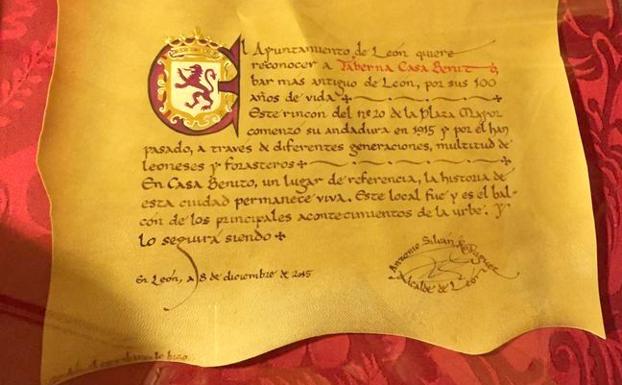 El Ayuntamiento de León quiere
reconocer a Taberna Casa Benito,
bar mas antiguo de León, por sus 100
años de vida
Este rincon del nº 20 de la Plaza Mayor
comenzó su andadura en 1915 y por el han
pasado, a traves de diferentes generaciones, multitud de
leoneses y forasteros
En Casa Benito, un lugar de referencia, la historia de
esta ciudad permanece viva. Este local fue y es el bal-
cón de los principales acontecimientos de la urbe. Y
lo seguirá siendo
En León, a 8 de diciembre de 2015
Antonio Silván Rodríguez
Alcalde de León